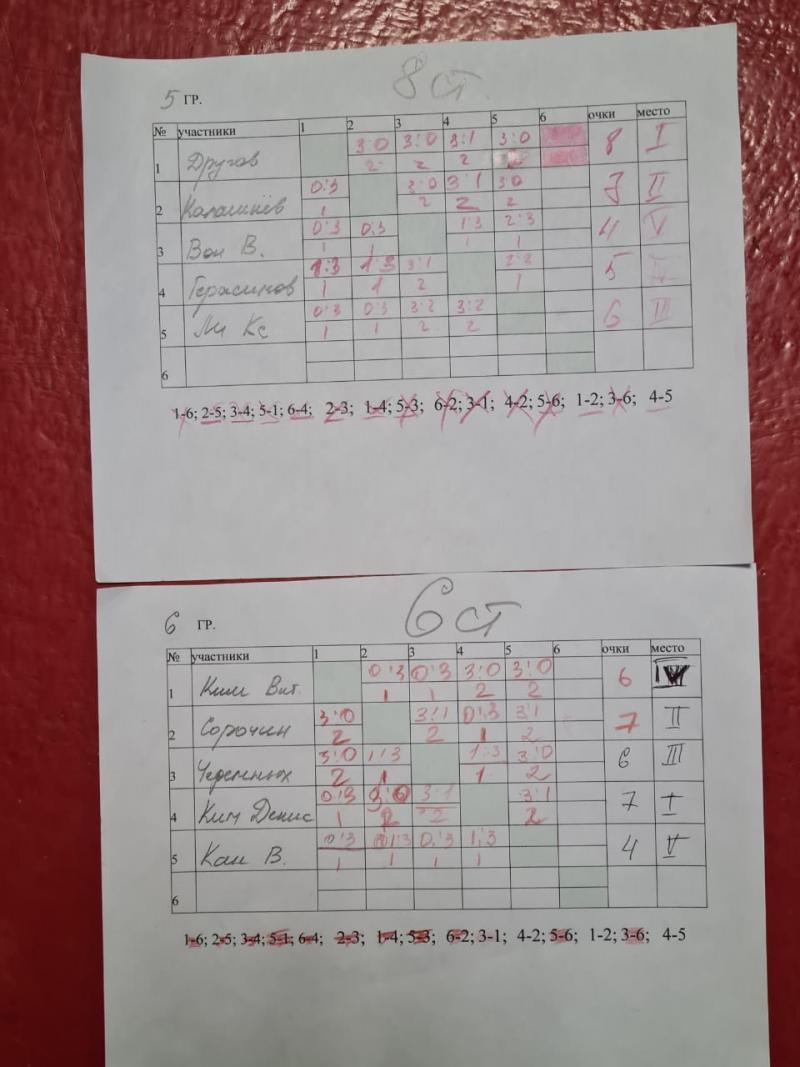 5 ГР. 8 ст.
№ участники 1 2 3 4 5 6 очки место
1 Другов 3:0 3:0 3:1 3:0 8 I
2 2 2
2 Калашнёв 0:3 3:0 3:1 3:0 7 II
1 2 2 2
3 Вон В. 0:3 0:3 1:3 2:3 4 V
1 1 1 1
4 Герасимов 1:3 1:3 3:1 5
1 1 2 1
5 Ли Кс 0:3 0:3 3:2 3:2 6 III
1 1 2 2
6
1-6; 2-5; 3-4; 5-1; 6-4; 2-3; 1-4; 5-3; 6-2; 3-1; 4-2; 5-6; 1-2; 3-6; 4-5
6 ГР. 6 ст
№ участники 1 2 3 4 5 6 очки место
1 Ким Вит. 0:3 0:3 3:0 3:0 6
1 1 2 2
2 Сорочин 3:0 3:1 0:3 3:1 7 II
2 2 1 2
3 Черемных 3:0 1:3 1:3 3:0 6 III
2 1 1 2
4 Ким Денис 0:3 3:0 3:1 3:1 7 I
1 2 2 2
5 Кан В. 0:3 1:3 0:3 1:3 4 V
1 1 1 1
6
1-6; 2-5; 3-4; 5-1; 6-4; 2-3; 1-4; 5-3; 6-2; 3-1; 4-2; 5-6; 1-2; 3-6; 4-5